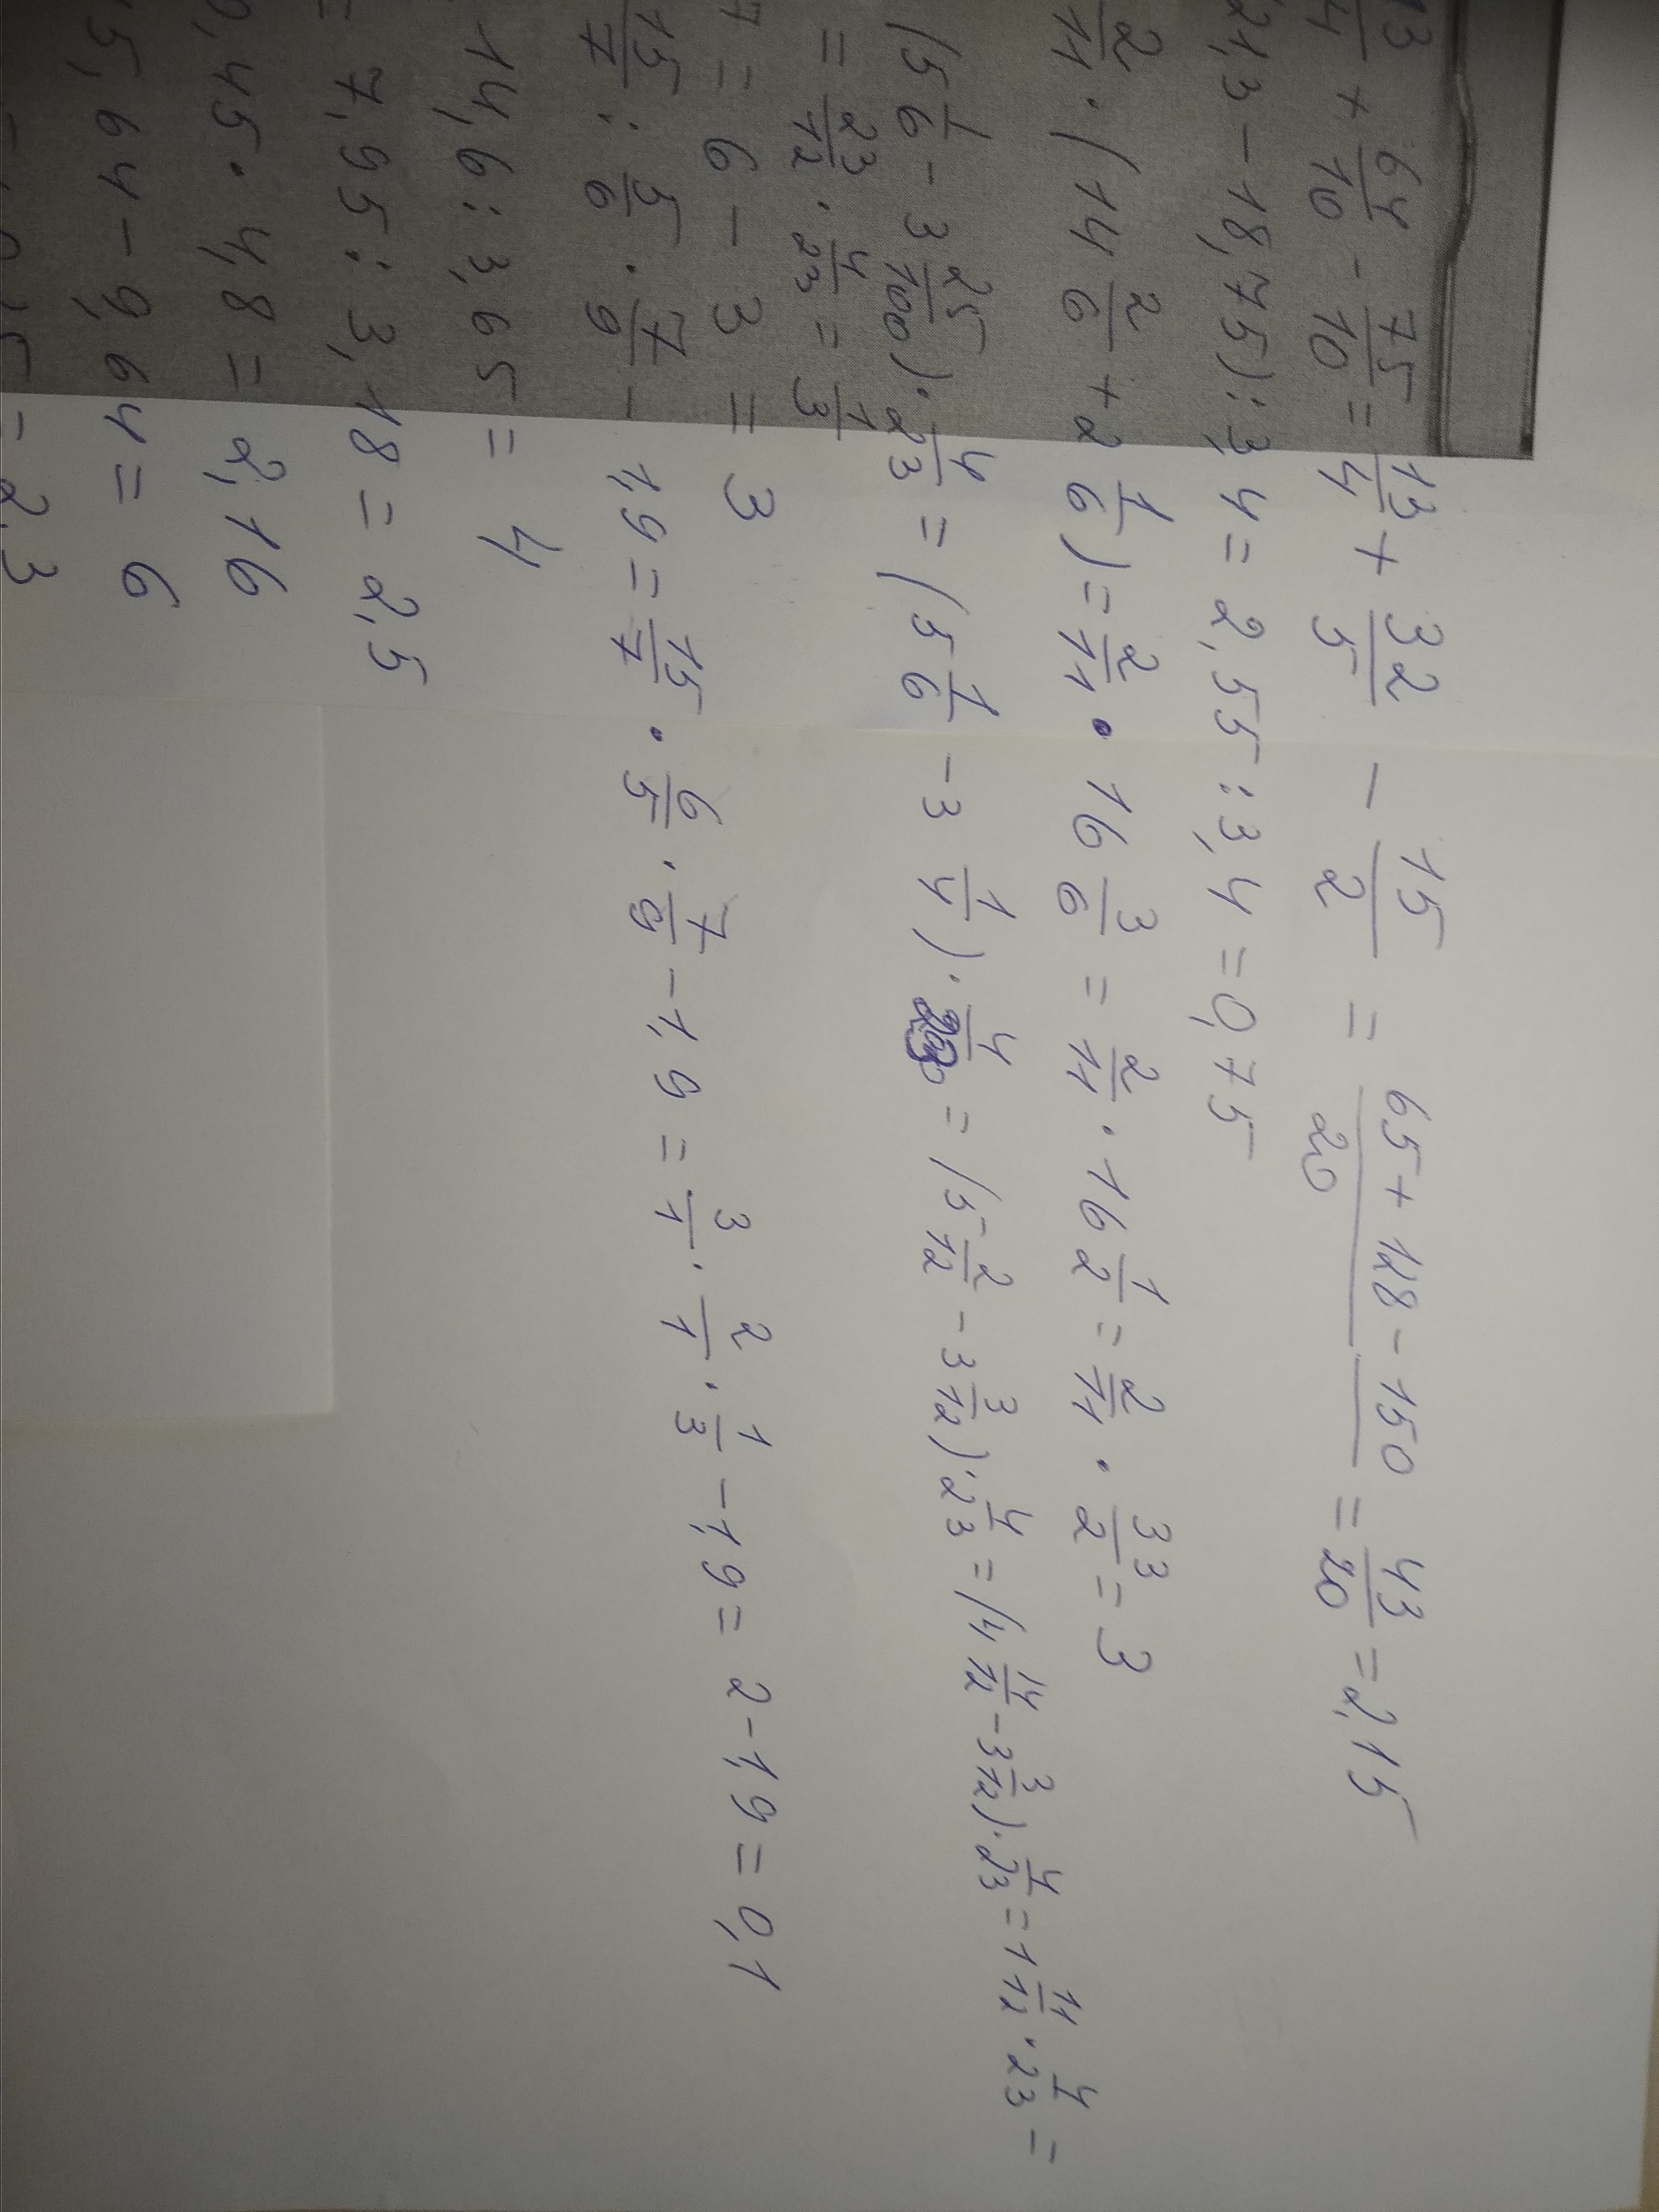 13/4 + 64/10 - 75/10 = 13/4 + 32/5 - 15/2 = (65 + 128 - 150)/20 = 43/20 = 2,15
21,3 - 18,75) : 3,4 = 2,55 : 3,4 = 0,75
2/11 · (14 2/6 + 2 1/6) = 2/11 · 16 3/6 = 2/11 · 16 1/2 = 2/11 · 33/2 = 3
(5 1/6 - 3 25/100) · 4/23 = (5 1/6 - 3 1/4) · 4/23 = (5 2/12 - 3 3/12) · 4/23 = (4 14/12 - 3 3/12) · 4/23 = 1 11/12 · 4/23 =
= 23/12 · 4/23 = 1/3
7 = 6 - 3 = 3
15/7 : 5/6 · 7/9 - 1,9 = 15/7 · 6/5 · 7/9 - 1,9 = 3/1 · 2/1 · 1/3 - 1,9 = 2 - 1,9 = 0,1
14,6 : 3,65 = 4
= 7,95 : 3,18 = 2,5
0,45 · 4,8 = 2,16
5,64 - 9,64 = 6
= 2,3